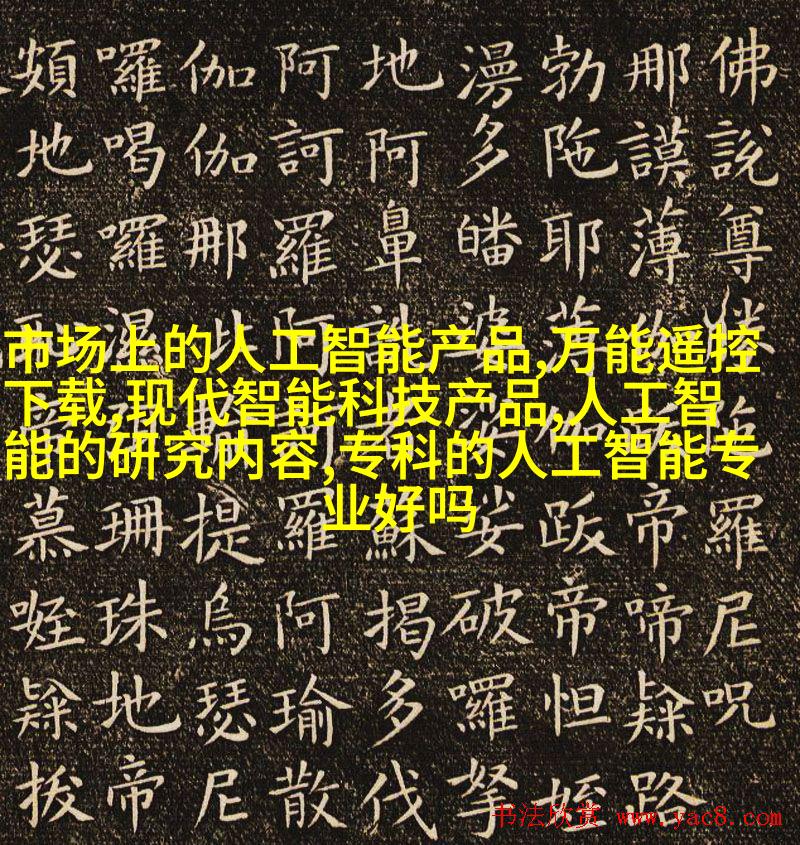 市场上的人工智能产品,万能遥控
下载,现代智能科技产品,人工智
能的研究内容,专科的人工智能专
业好吗
佛說尊羅尼呪
那謨薄帝啼隸路
勃陁耶跋帝怛姪
多皤破囉拏
地阿鼻蘇揭多伐
阿訶羅羅阿瑜散
伽伽那提烏瑟尼
囉喝囉珊珠地帝
頞地瑟慕咥隸拔
书法欣赏 www.yac8.com